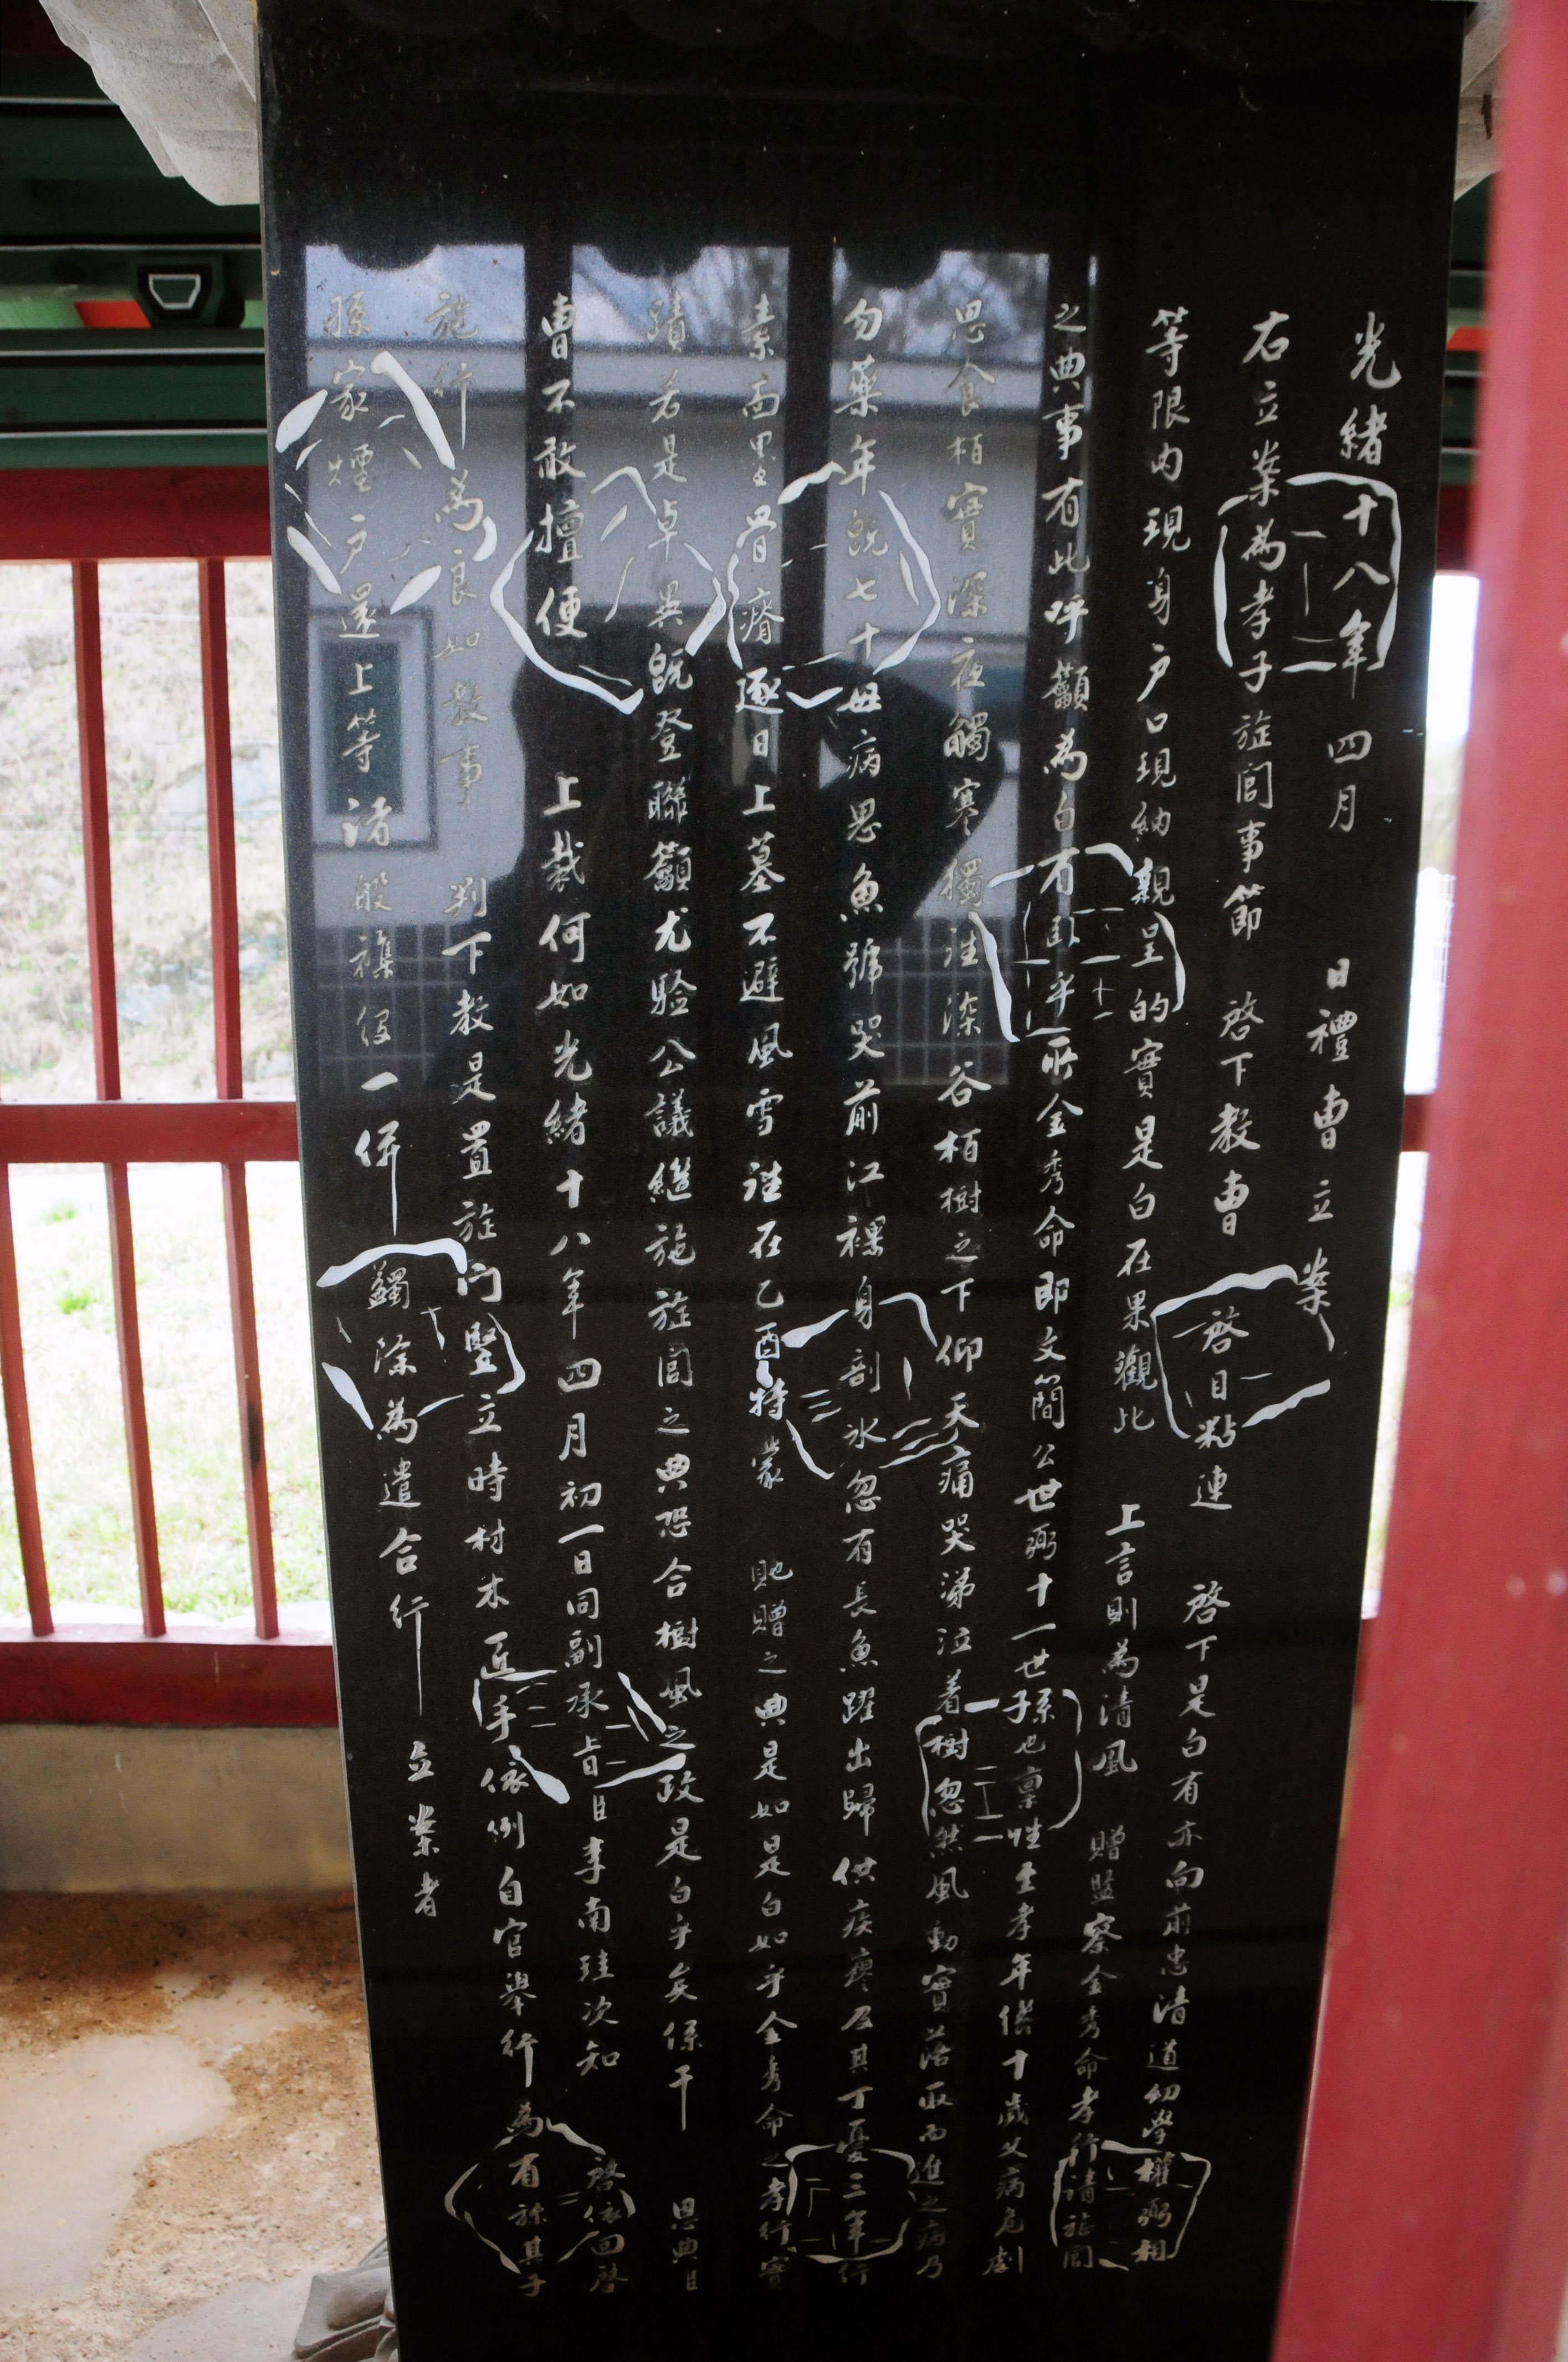 光緒十八年四月 日禮曹立案
右立案為孝子旌閭事節 啓下教曹 啓目粘連 啓下是白有亦向前忠清道幼學權弼相
等限內現身戶口現納親呈的實是白在果觀此 上言則為清風 贈監察金秀命孝行請旌閭
之典事有此呼籲為白有臥乎所金秀命即文簡公世弼十一世孫也稟性至孝年僅十歲父病危劇
思食栢實深夜觸寒獨往深谷栢樹之下仰天痛哭涕泣着樹忽然風動實落取而進之病乃
勿藥年旣七十母病思魚號哭前江裸身剖氷忽有長魚躍出歸供疾瘳及其丁憂三年行
素面墨骨瘠逐日上墓不避風雪往在乙酉特蒙 貤贈之典是如是白如乎金秀命之孝行實
蹟若是卓異旣登聯籲尤驗公議繼施旌閭之典恐合樹風之政是白乎矣係干 恩典臣
曹不敢擅便 上裁何如光緒十八年四月初一日同副承旨臣李南珪次知 啓依回啓
施行為良如教事 判下教是置旌門竪立時材木匠手依例自官舉行為有旀其子
孫家煙戶還上等諸般襍役一倂蠲除為遣合行立案者